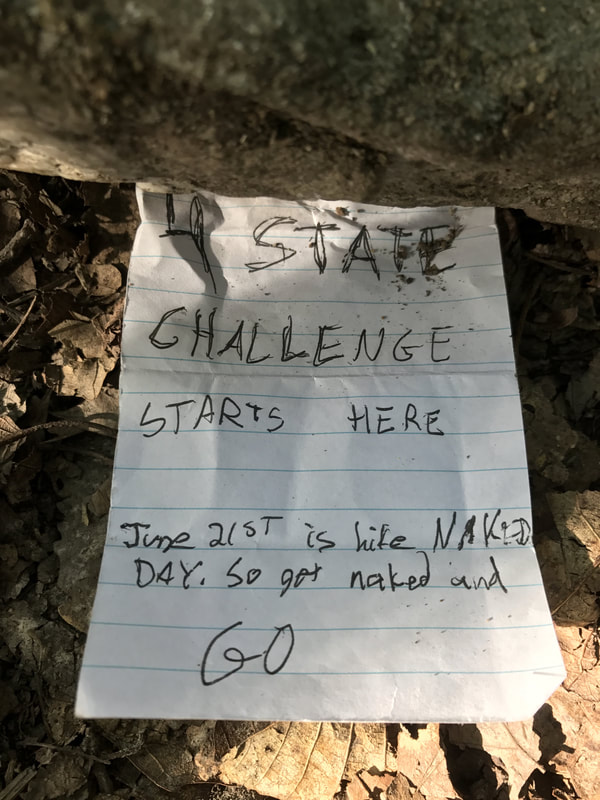 4 STATE
CHALLENGE
STARTS HERE
June 21ST is hike NAKED
DAY. So get naked and
GO